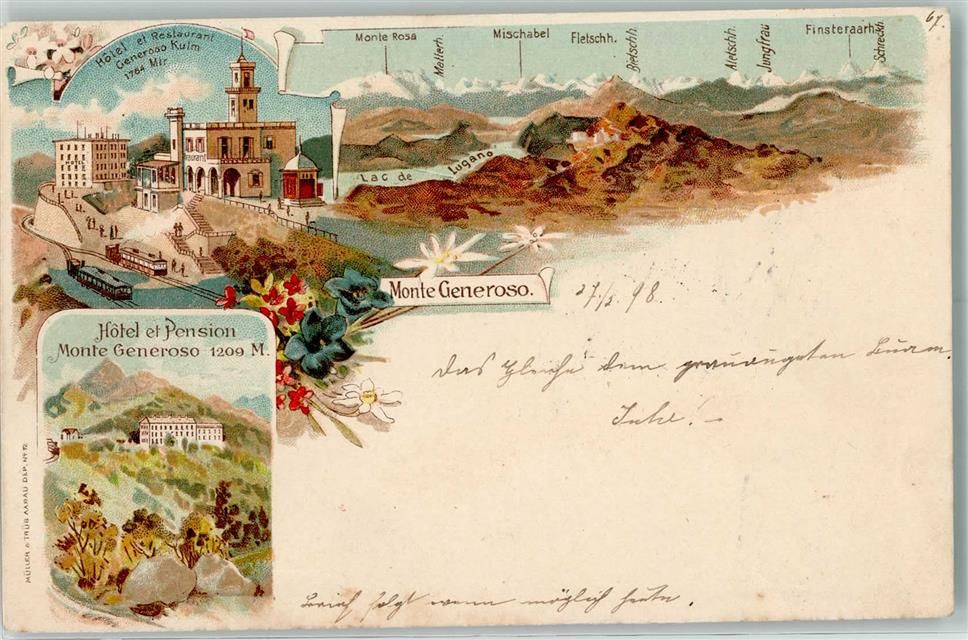 67.
Hôtel et Restaurant
Generoso Kulm
1764 Mtr
HOTEL
Monte Rosa
Matterh.
Mischabel
Fletschh.
Bietschh.
Aletschh.
Jungfrau
Finsteraarh.
Schreckh.
Lac de Lugano
Monte Generoso.
27/5 98.
Das Gleiche dem grauäugeten Buam
Hôtel et Pension
Monte Generoso 1209 M.
MÜLLER & TRÜB AARAU DEP. No 72
Brief folgt wenn möglich heute.